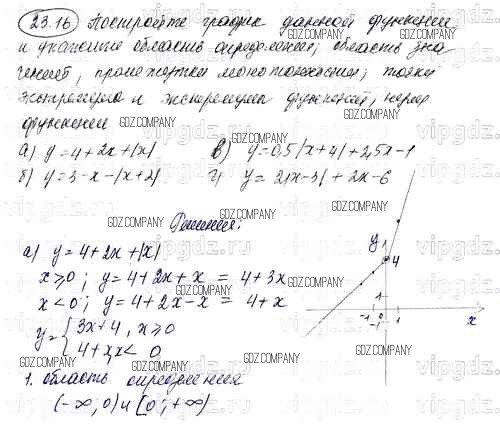 23.16 Постройте график данной функции
и укажите область определения; область зна
чений, промежутки монотонности; точки
экстремума и экстремумы функции, нули
функции
а) y = 4 + 2x + |x|
в) y = 0,5|x + 4| + 2,5x - 1
б) y = 3 - x - |x + 2|
г) y = 2|x - 3| + 2x - 6
Решение:
а) y = 4 + 2x + |x|
x ≥ 0 ; y = 4 + 2x + x = 4 + 3x
x < 0 ; y = 4 + 2x - x = 4 + x
y = { 3x + 4 , x ≥ 0
4 + x, x < 0
1. область определения
(-∞; 0) и [0 ; +∞)
y
4
1
-1 0 1
-1
x
GDZ.COMPANY
vipgdz.ru